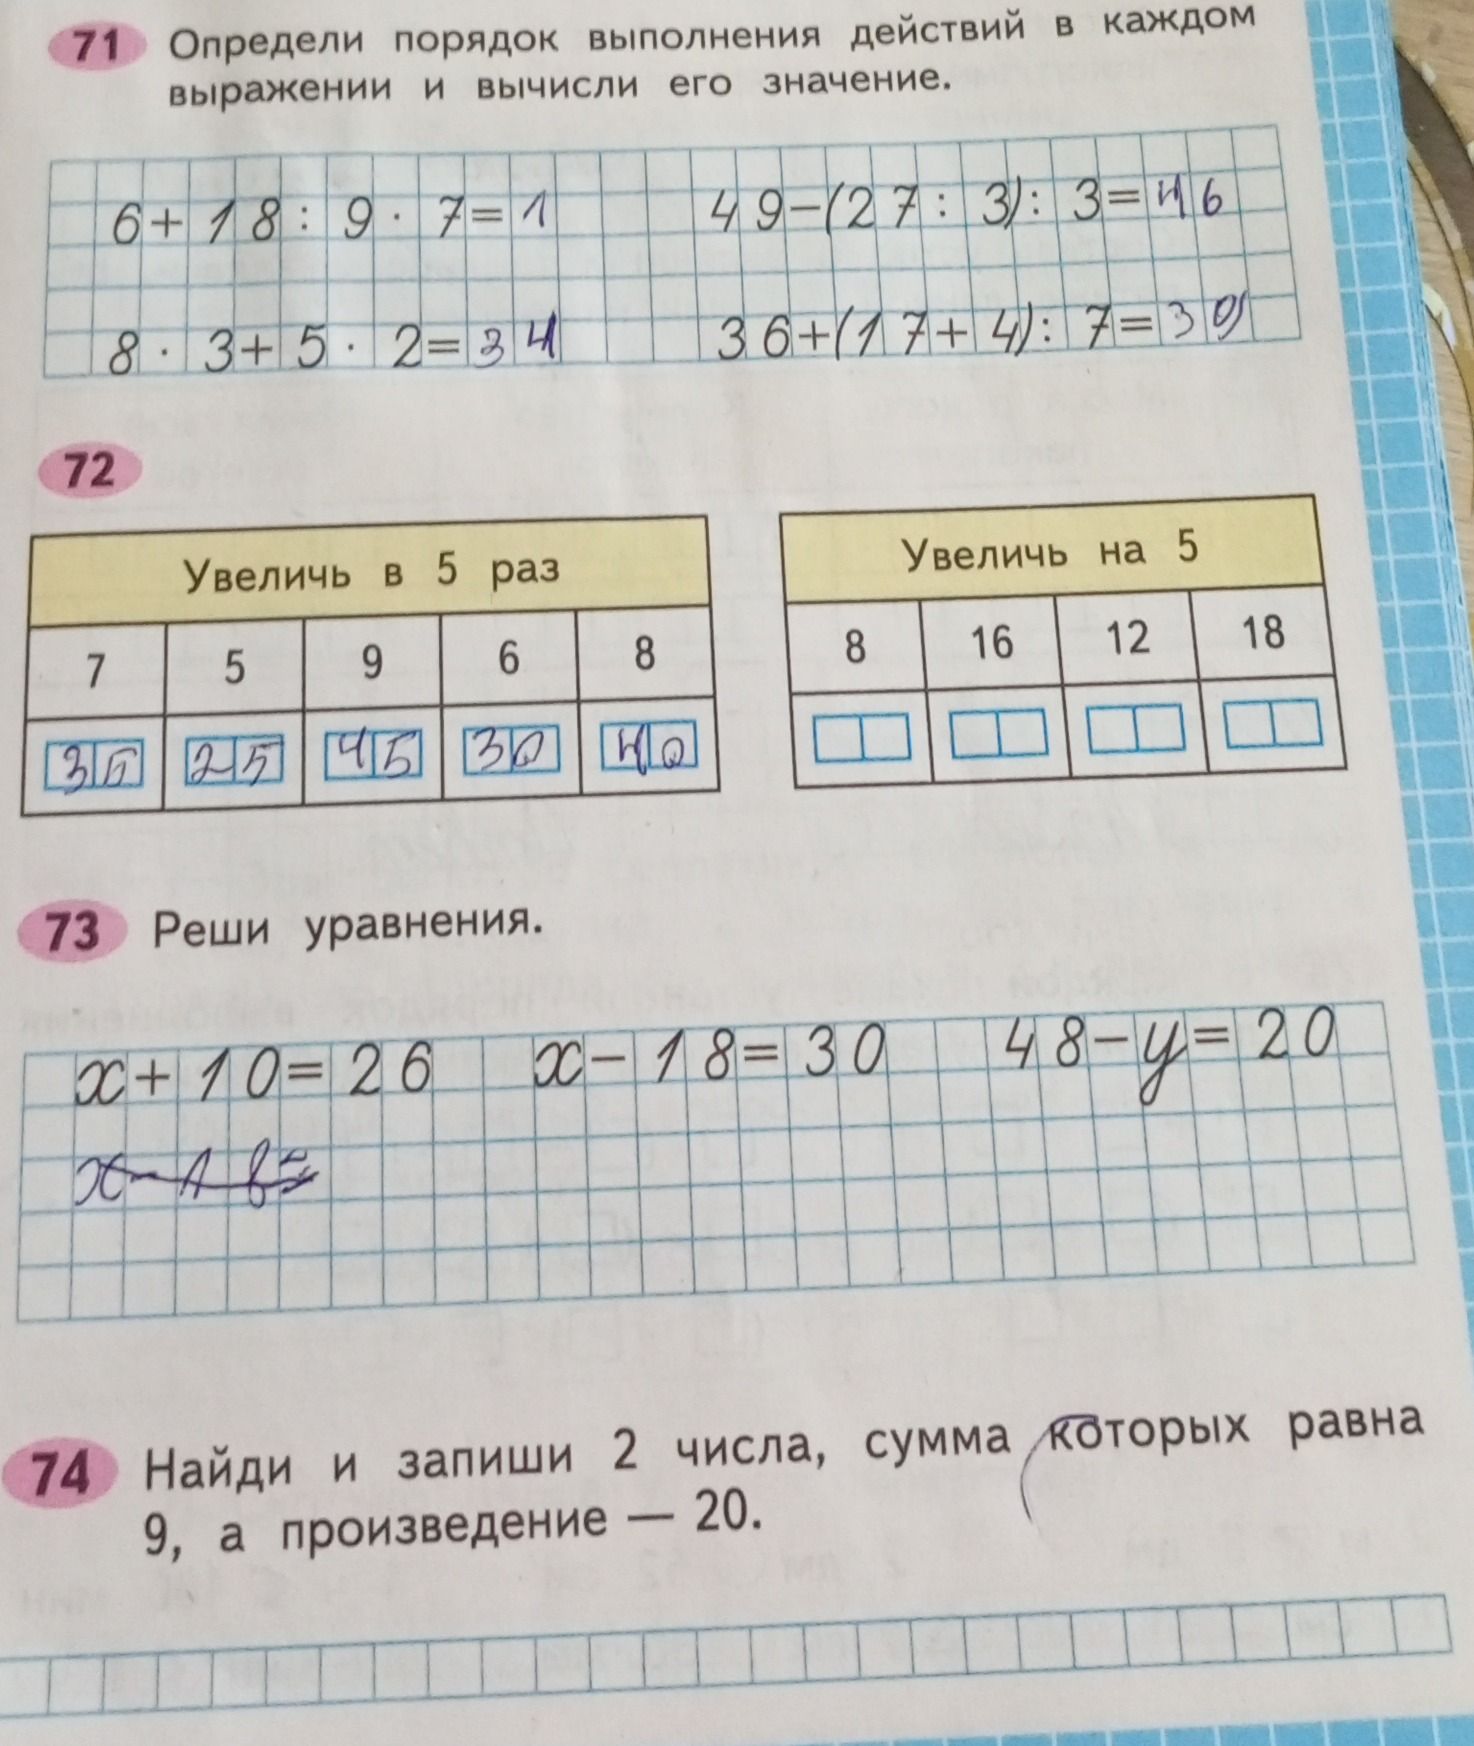 71 Определи порядок выполнения действий в каждом
выражении и вычисли его значение.
6+18:9·7=1 49-(27:3):3=46
8·3+5·2=34 36+(17+4):7=39
72
Увеличь в 5 раз
7 5 9 6 8
35 25 45 30 40
Увеличь на 5
8 16 12 18
73 Реши уравнения.
x+10=26 x-18=30 48-y=20
74 Найди и запиши 2 числа, сумма которых равна
9, а произведение — 20.